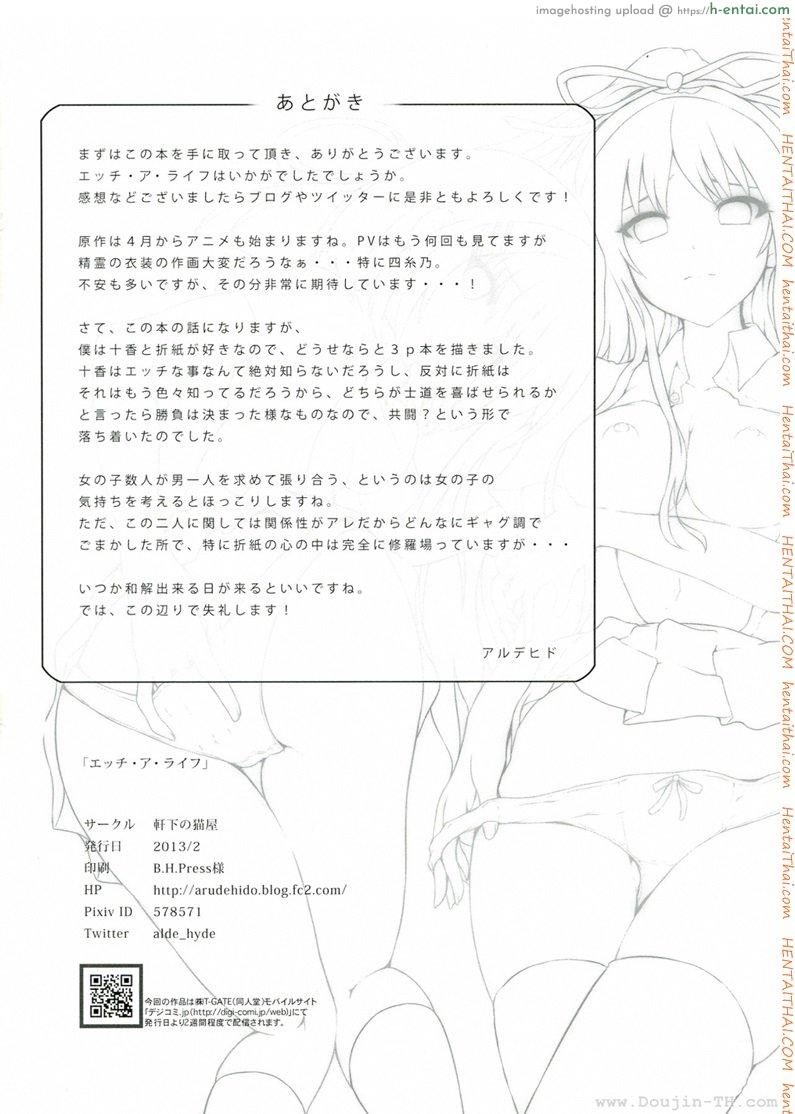 imagehosting upload @ https://h-entai.com
あとがき
まずはこの本を手に取って頂き、ありがとうございます。
エッチ・ア・ライフはいかがでしたでしょうか。
感想などございましたらブログやツイッターに是非ともよろしくです！
原作は４月からアニメも始まりますね。PVはもう何回も見てますが
精霊の衣装の作画大変だろうなぁ・・・特に四糸乃。
不安も多いですが、その分非常に期待しています・・・！
さて、この本の話になりますが、
僕は十香と折紙が好きなので、どうせならと３ｐ本を描きました。
十香はエッチな事なんて絶対知らないだろうし、反対に折紙は
それはもう色々知ってるだろうから、どちらが士道を喜ばせられるか
と言ったら勝負は決まった様なものなので、共闘？という形で
落ち着いたのでした。
女の子数人が男一人を求めて張り合う、というのは女の子の
気持ちを考えるとほっこりしますね。
ただ、この二人に関しては関係性がアレだからどんなにギャグ調で
ごまかした所で、特に折紙の心の中は完全に修羅場っていますが・・・
いつか和解出来る日が来るといいですね。
では、この辺りで失礼します！
アルデヒド
「エッチ・ア・ライフ」
サークル 軒下の猫屋
発行日 2013/2
印刷 B.H.Press様
HP http://arudehido.blog.fc2.com/
Pixiv ID 578571
Twitter alde_hyde
今回の作品は㈱T-GATE(同人堂)モバイルサイト
「デジコミ.jp(http://digi-comi.jp/web)」にて
発行日より2週間程度で配信されます。
www.Doujin-TH.com
entaiThai.com HENTAITHAI.COM hentaithai.com HentaiThai.com HENTAITHAI.COM hentaithai.com HentaiThai.com HENTAITHAI.COM hent